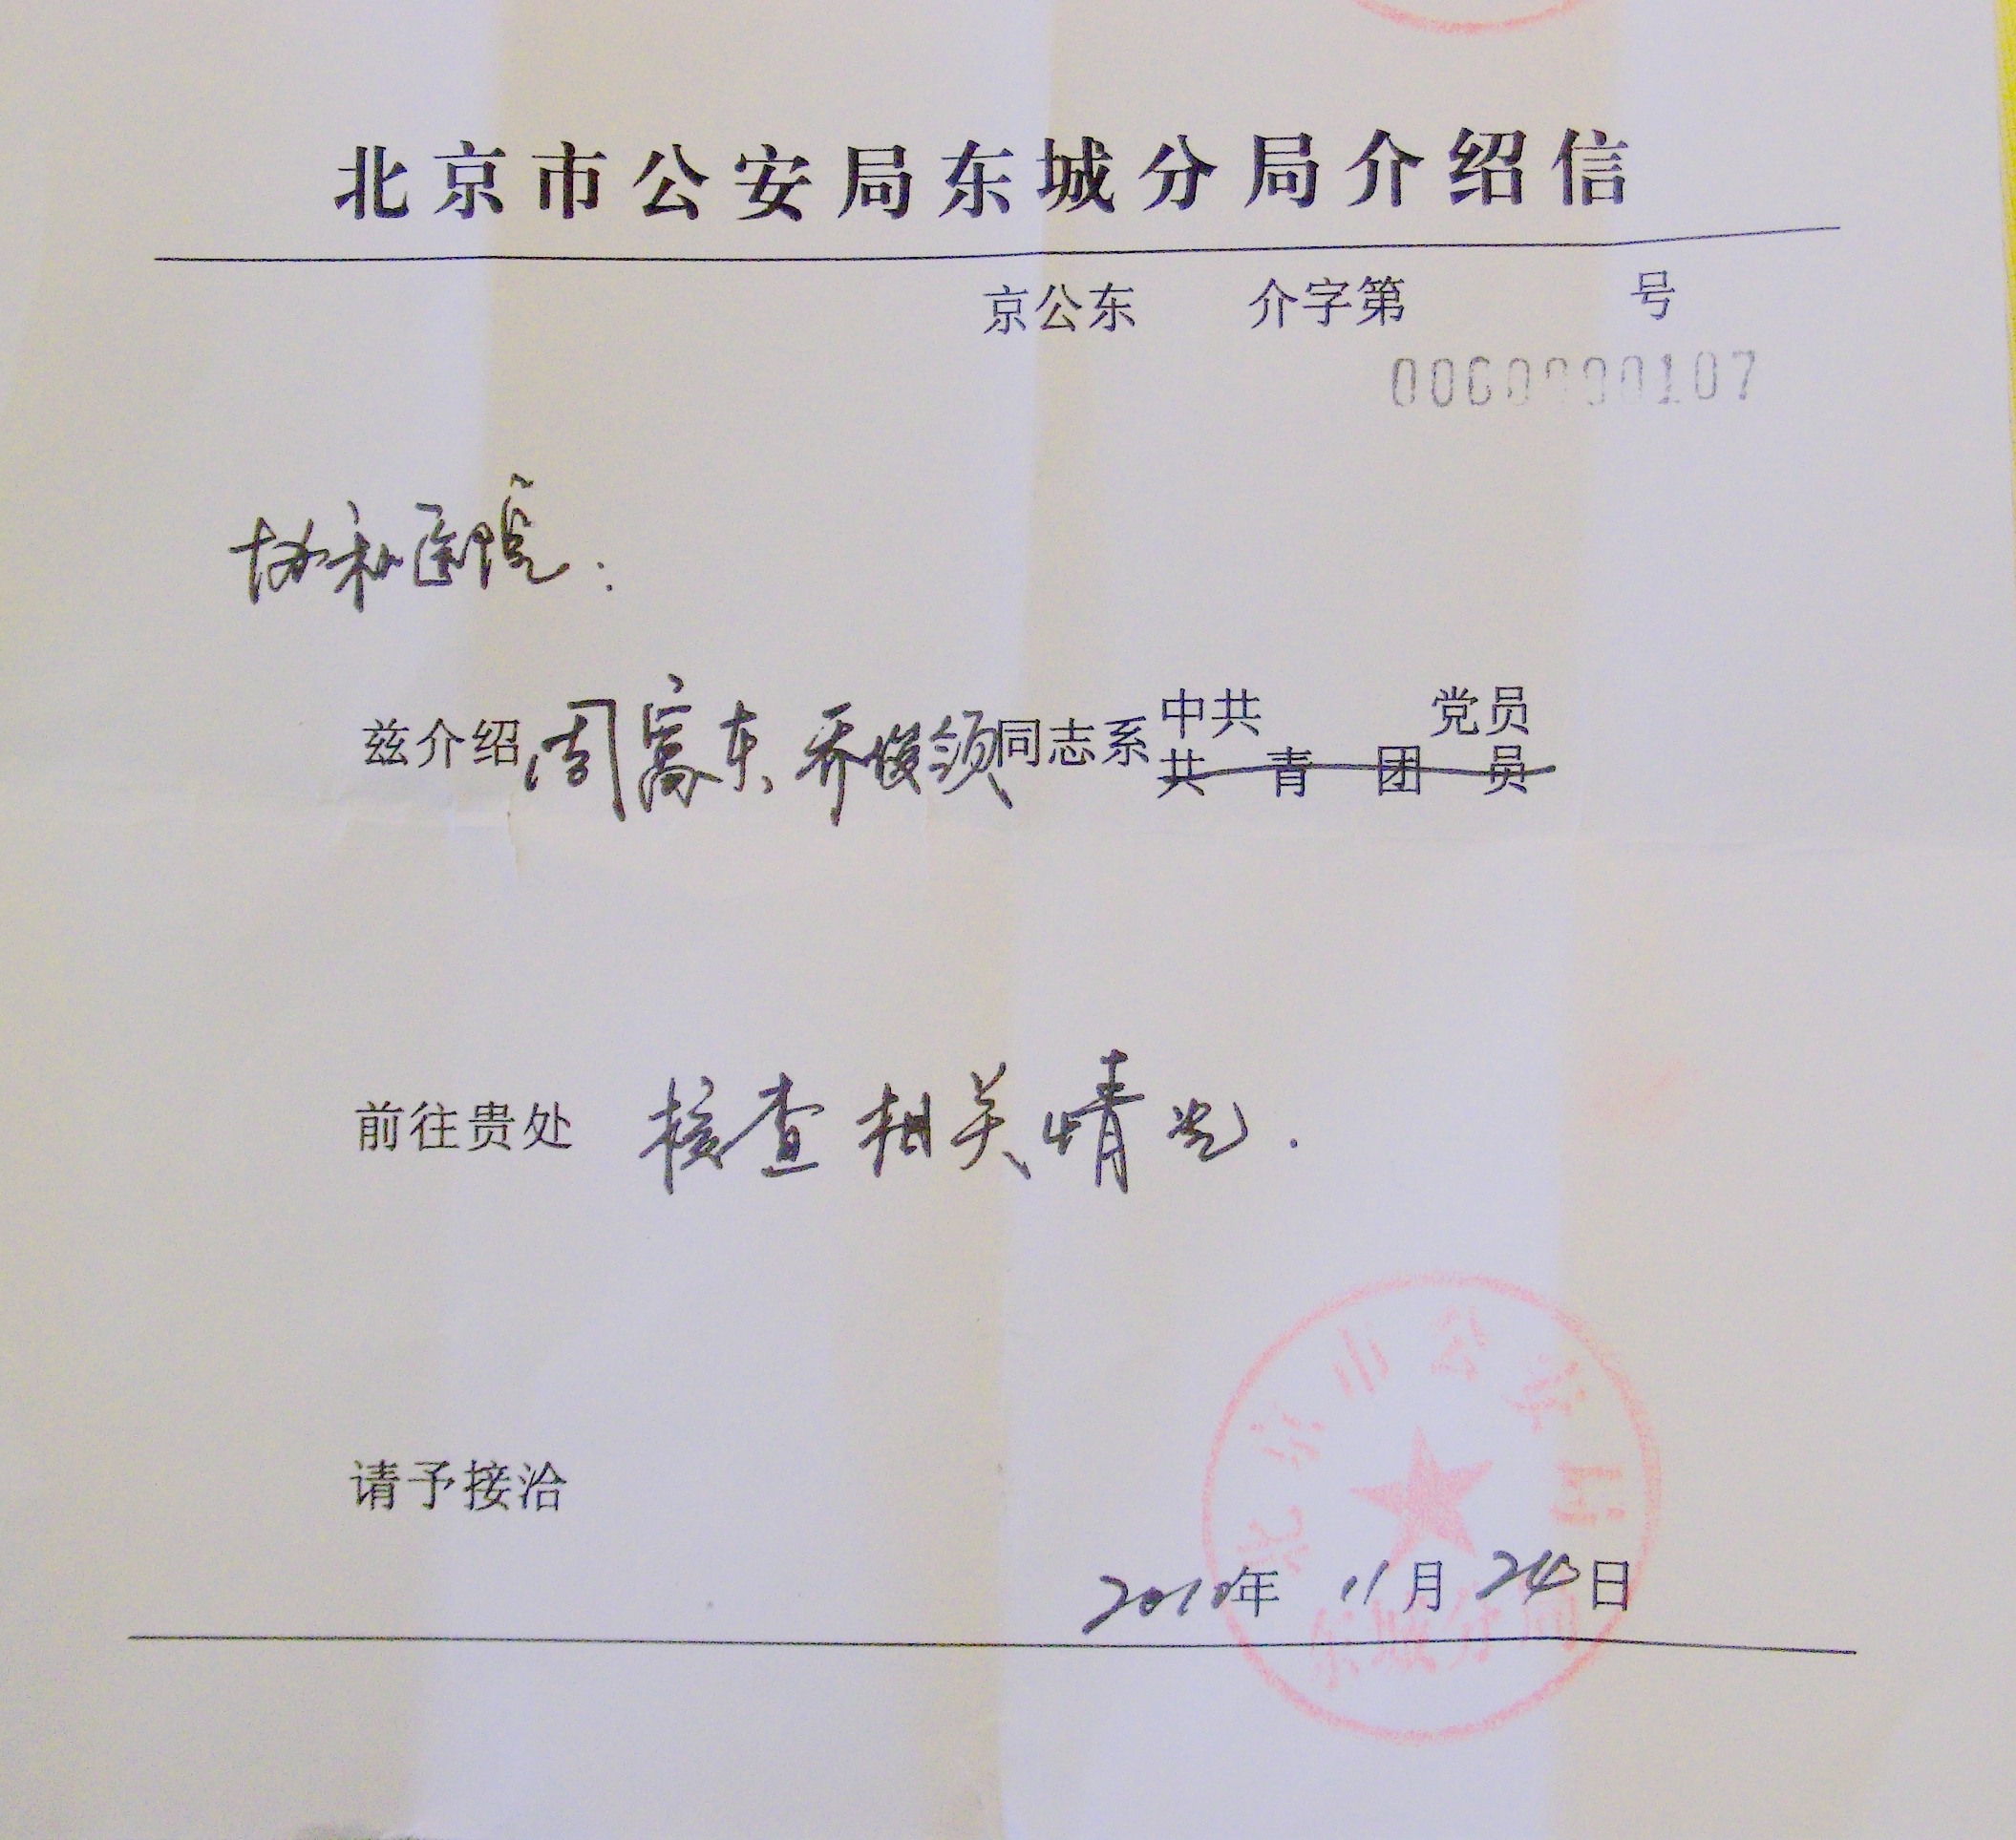 北京市公安局东城分局介绍信
京公东 介字第 号
0000000107
协和医院：
兹介绍周富东 乔俊领同志系中共 党员
共青团员
前往贵处 核查相关情况.
请予接洽
北京市公安局
2010年 11月 24日
东城分局